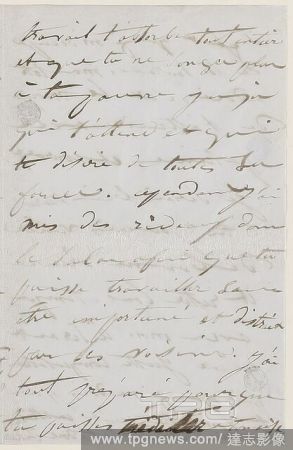 travail t'absorbe tout entier
et que tu ne songes plus
à ta pauvre Juju
qui t'attend et qui
te désire de toutes ses
forces. cependant j'ai
mis des rideaux dans
le salon afin que tu
puisses travailler sans
être importuné et distrait
par les voisins. j'ai
tout préparé pour que
tu puisses travailler
www.tpgnews.com / 達志影像